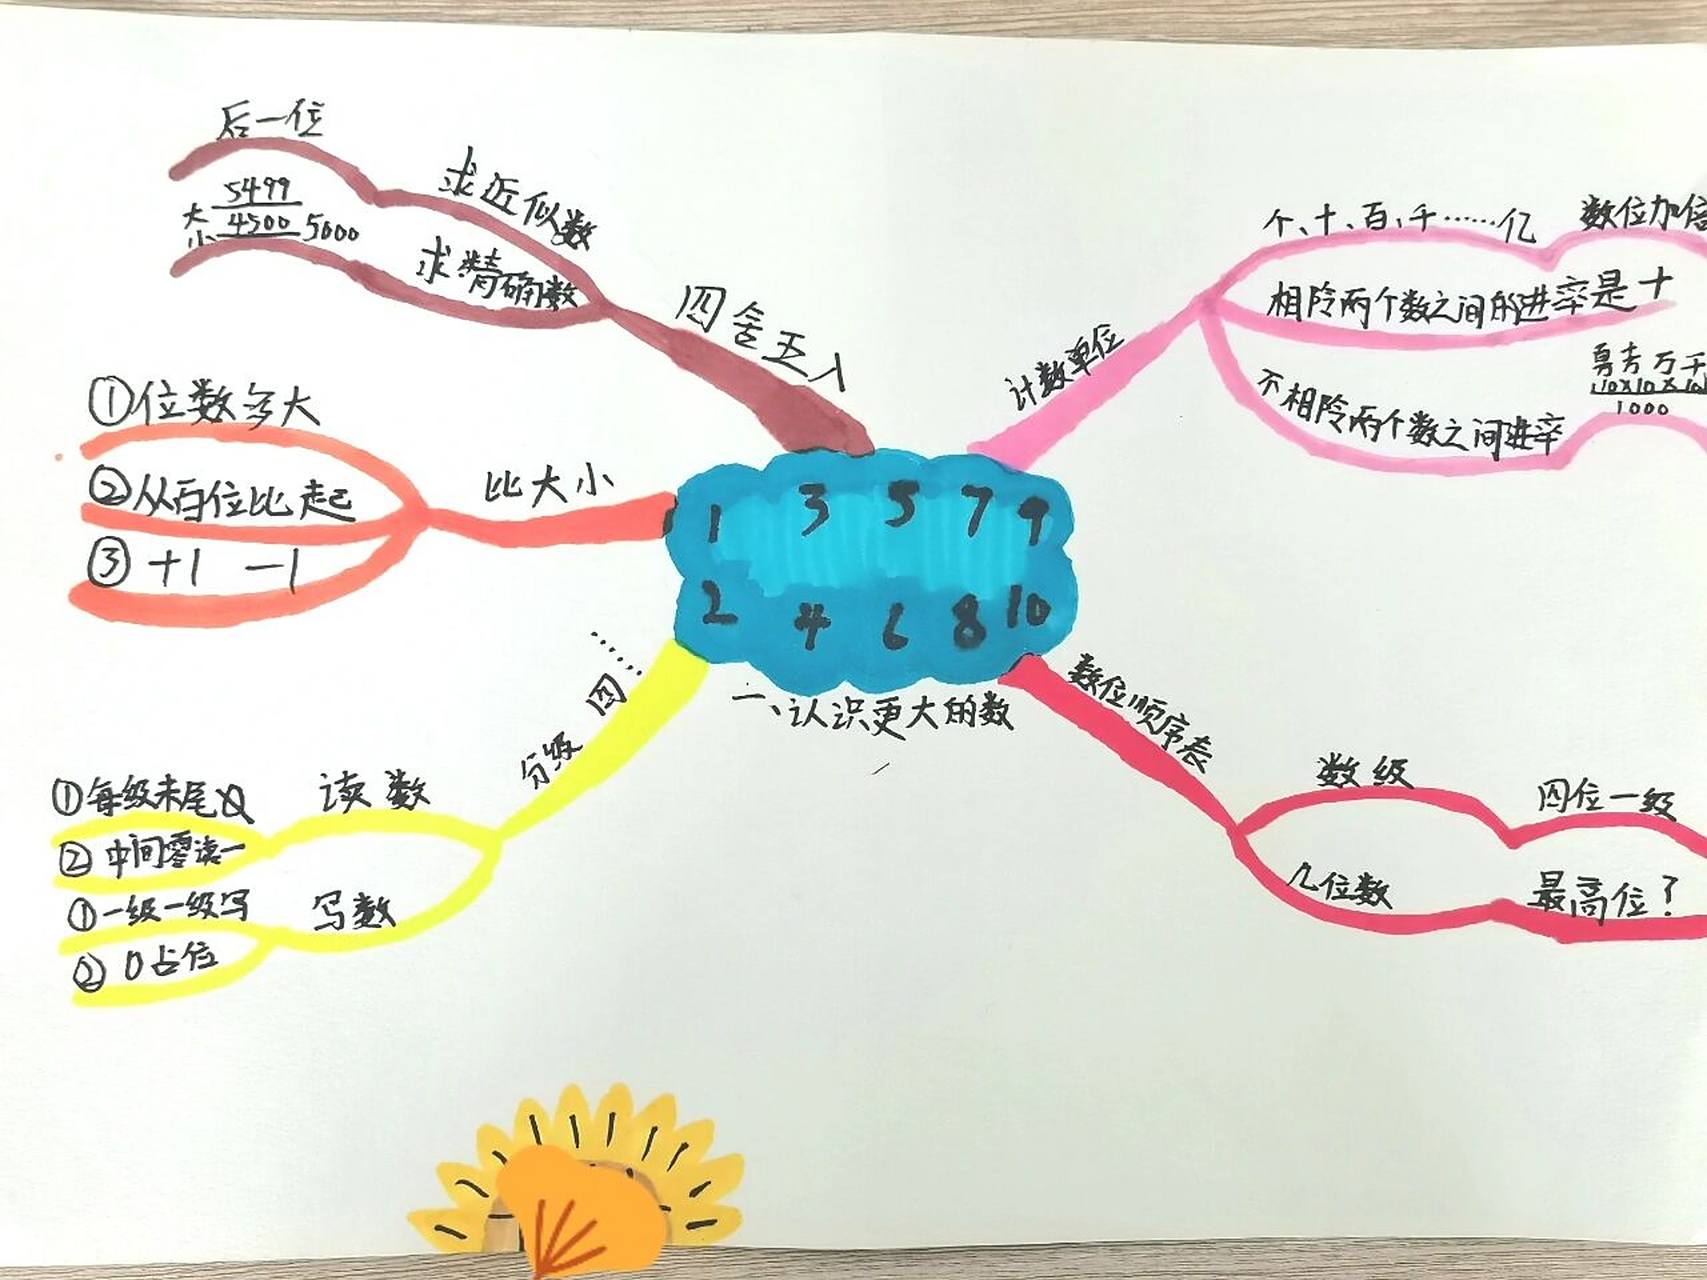 后一位
求近似数
5499
大
4500 5000
小
求精确数
四舍五入
①位数多大
②从百位比起
③ +1 -1
比大小
1 3 5 7 9
2 4 6 8 10
一、认识更大的数
计数单位
个、十、百、千……亿
数位加
相阾两个数之间的进率是十
不相阾两个数之间进率
万千
10×10×10
1000
数位顺序表
数级
四位一级
几位数
最高位?
分级 四……
读数
①每级末尾
②中间零读一
写数
①一级一级写
②0占位